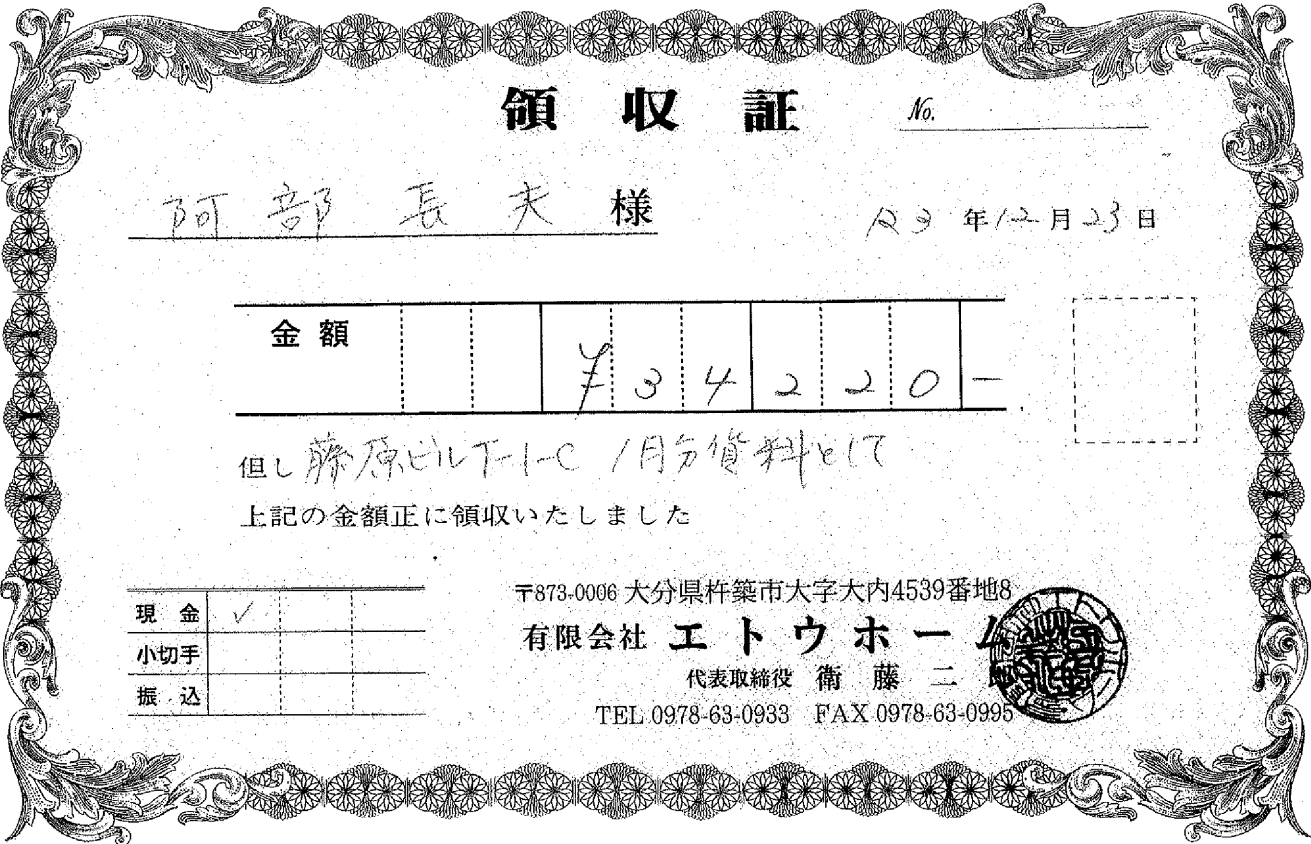 領収証
No.
阿部 長夫 様
R3年12月23日
金額 ¥34220-
但し 藤原ビル下-1-C 1月分賃料として
上記の金額正に領収いたしました
現金 ✓
小切手
振込
〒873-0006 大分県杵築市大字大内4539番地8
有限会社 エトウホーム
代表取締役 衛藤二
TEL 0978-63-0933 FAX 0978-63-0995